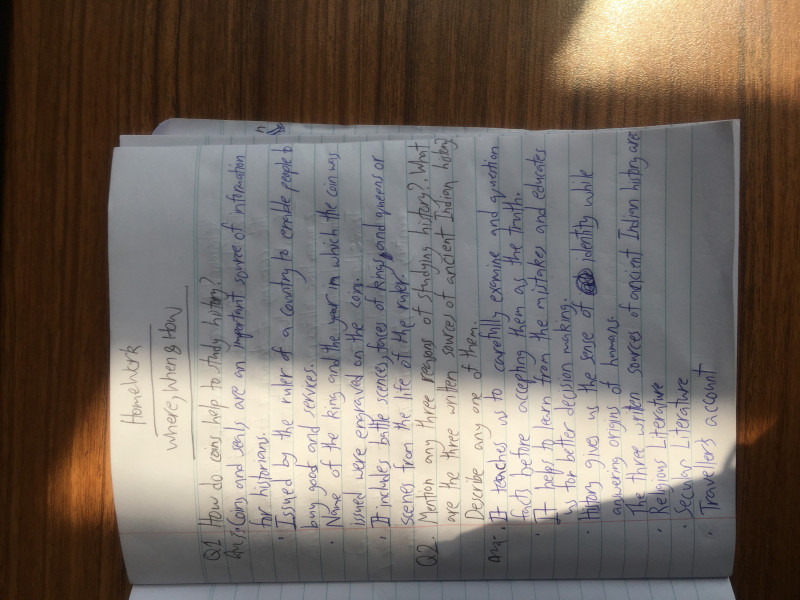 Homework
Where, When & How
Q1 How do coins help to study history?
Ans: Coins and seals are an important source of information
for historians.
• Issued by the ruler of a country to enable people to
buy good and services.
• Name of the king and the year in which the coin was
issued were engraved on the coin.
• It includes battle scences, faces of kings and queens or
scenes from the life of the ruler.
Q2. Mention any three reasons of studying history? What
are the three written sources of ancient Indian history
Describe any one of them.
Ans- • It teaches us to carefully exemine and question
facts before accepting them as the truth.
• It help to learn from the mistakes and educates
us for better decision making.
• History gives us the sense of identity while
answering origins of humans.
The three written sources of ancient Indian history are
• Religious Literature
• Secular Literature
• Traveller's account